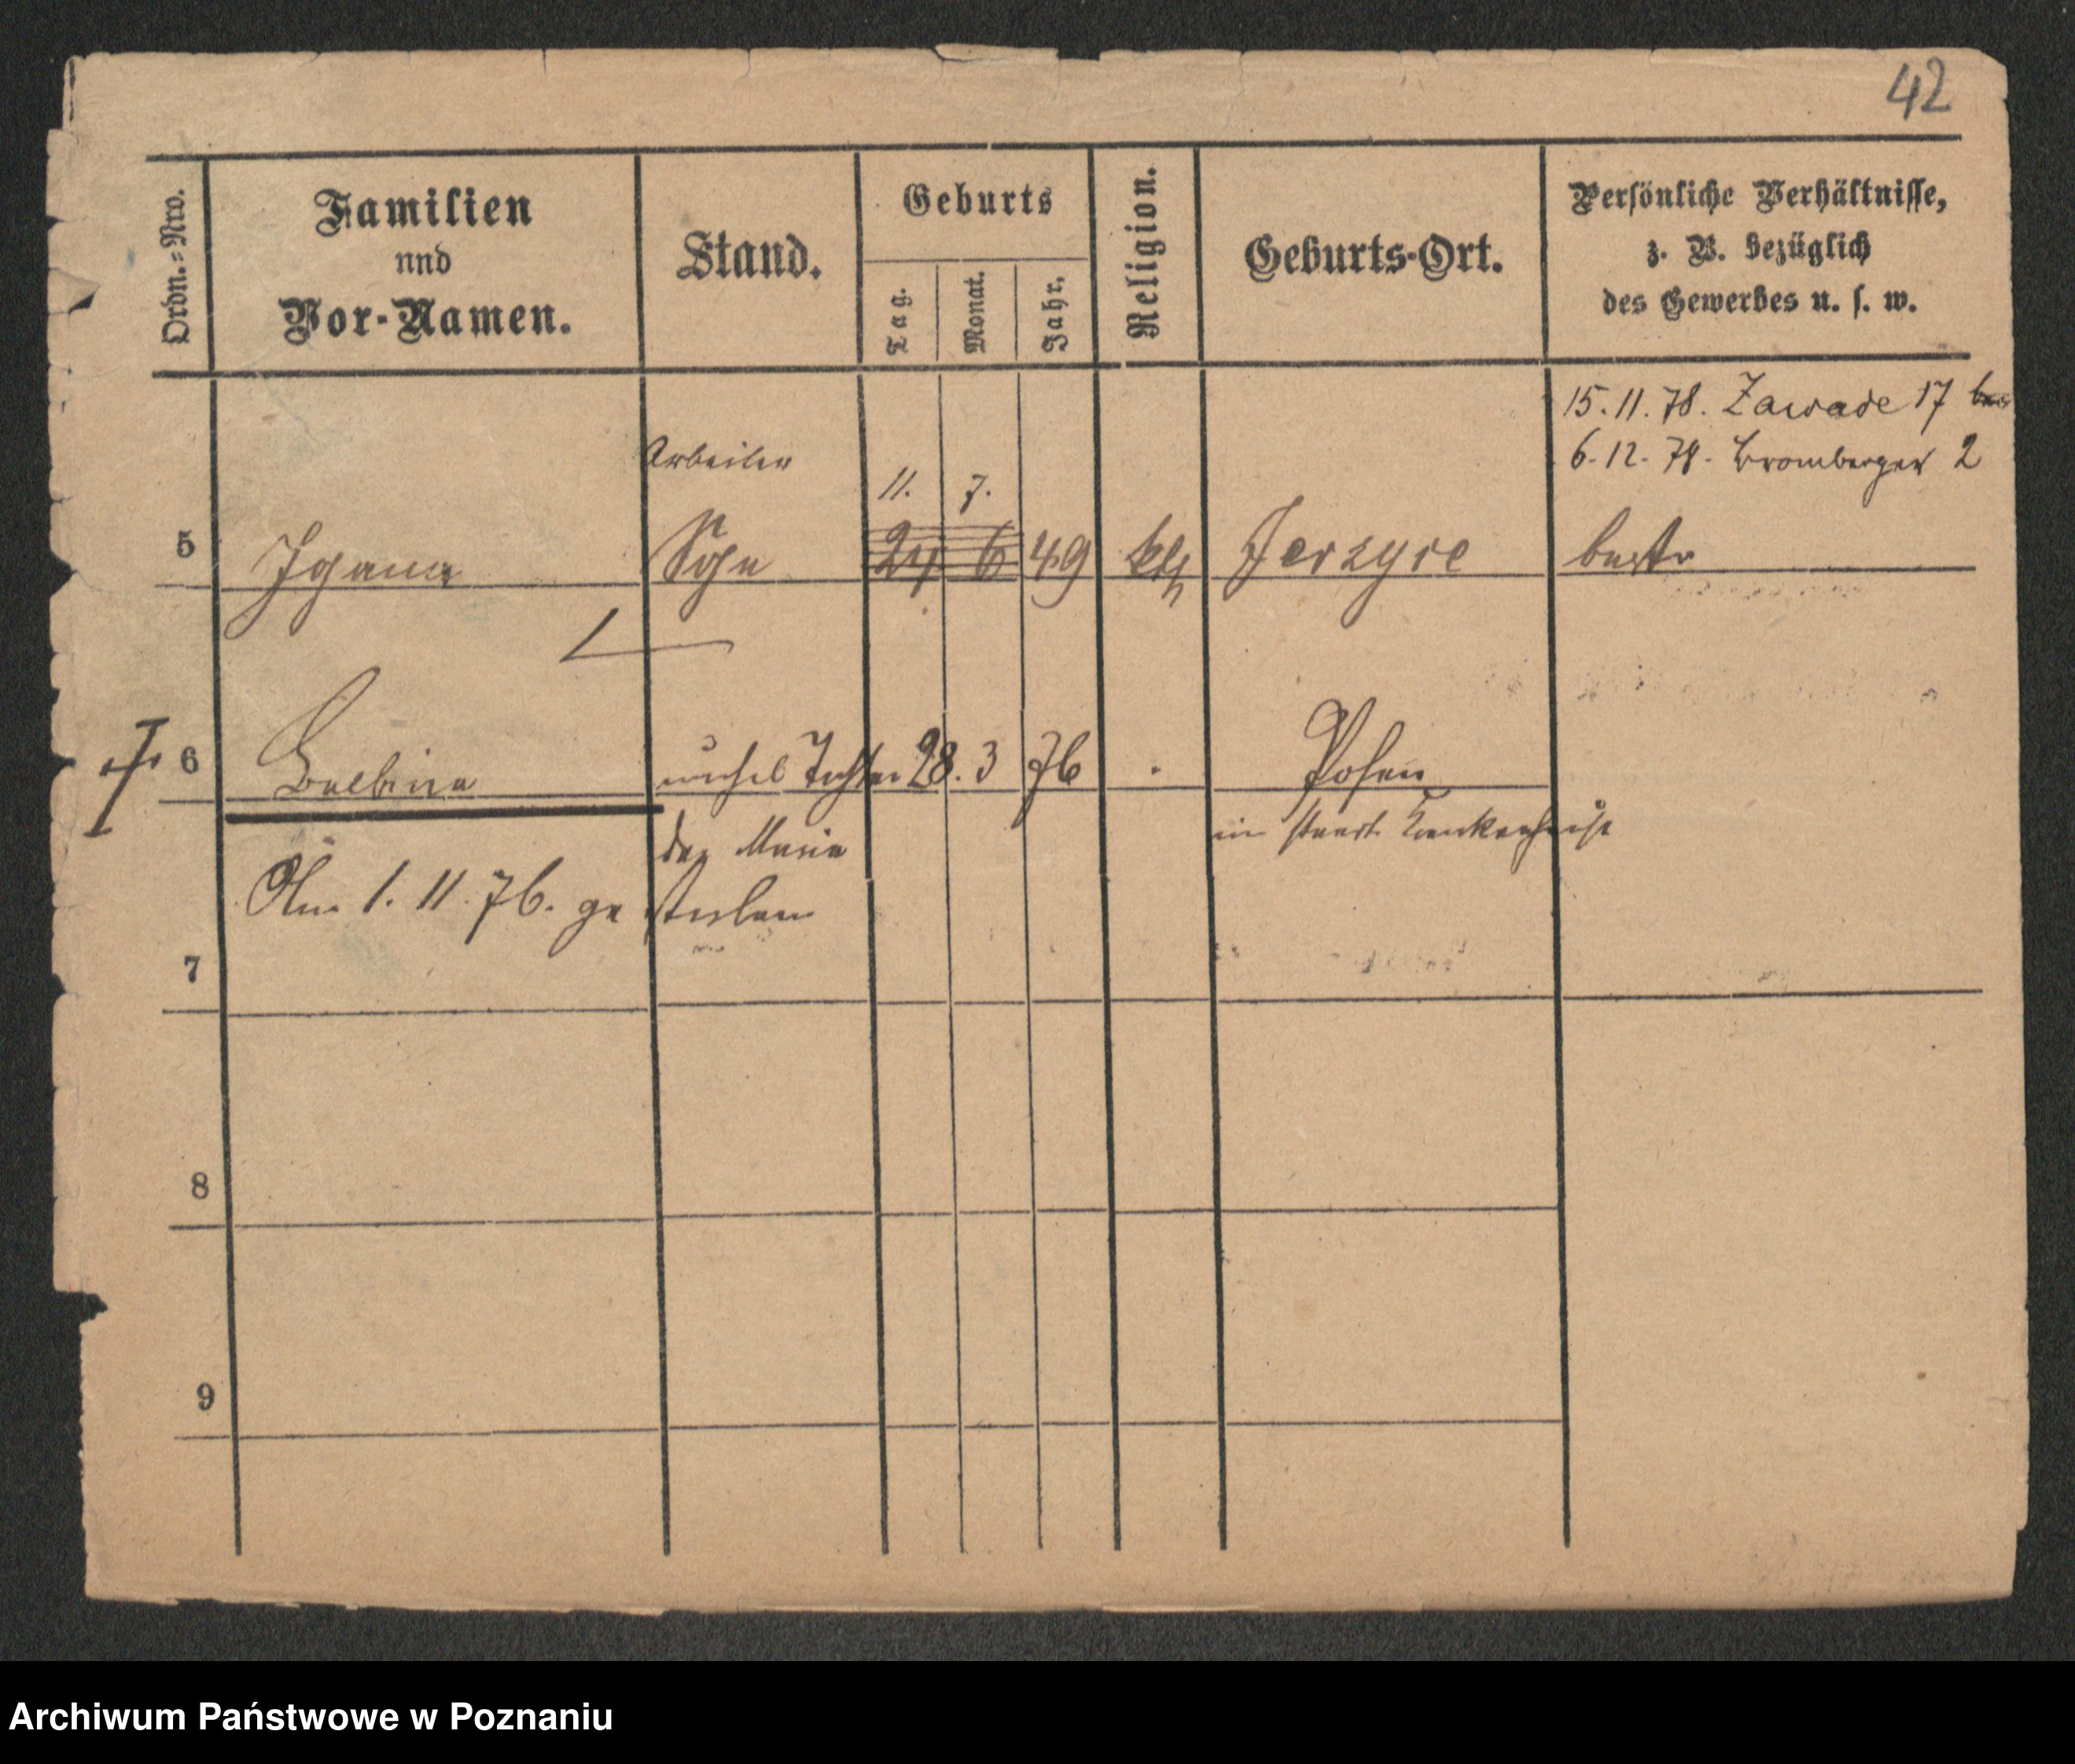 42
Ordn.-Nro.
Familien
und
Vor-Namen.
Stand.
Geburts
Tag.
Monat.
Jahr.
Religion.
Geburts-Ort.
Persönliche Verhältnisse,
z. B. bezüglich
des Gewerbes u. s. w.
15.11.78. Zawade 17
6.12.78. Bromberger 2
Arbeiter
11. 7.
5 Ignatz Sohn 24 6 49 kth Jerzyce
6 Balbina unehel Tochter 28. 3 76 Posen
der Maria im stadt Krankenhause
Am 1. 11. 76. gestorben
7
8
9
Archiwum Państwowe w Poznaniu